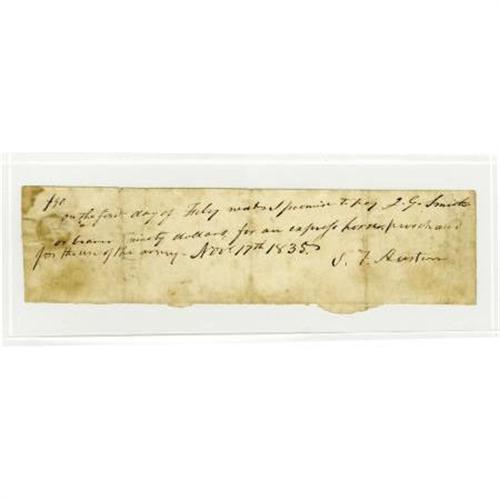 $90
on the first day of Feby next I promise to pay J. G. Smith
or bearer ninety dollars for an express horse, purchased
for the use of the army. Nov. 17th 1835.
S. F. Austin